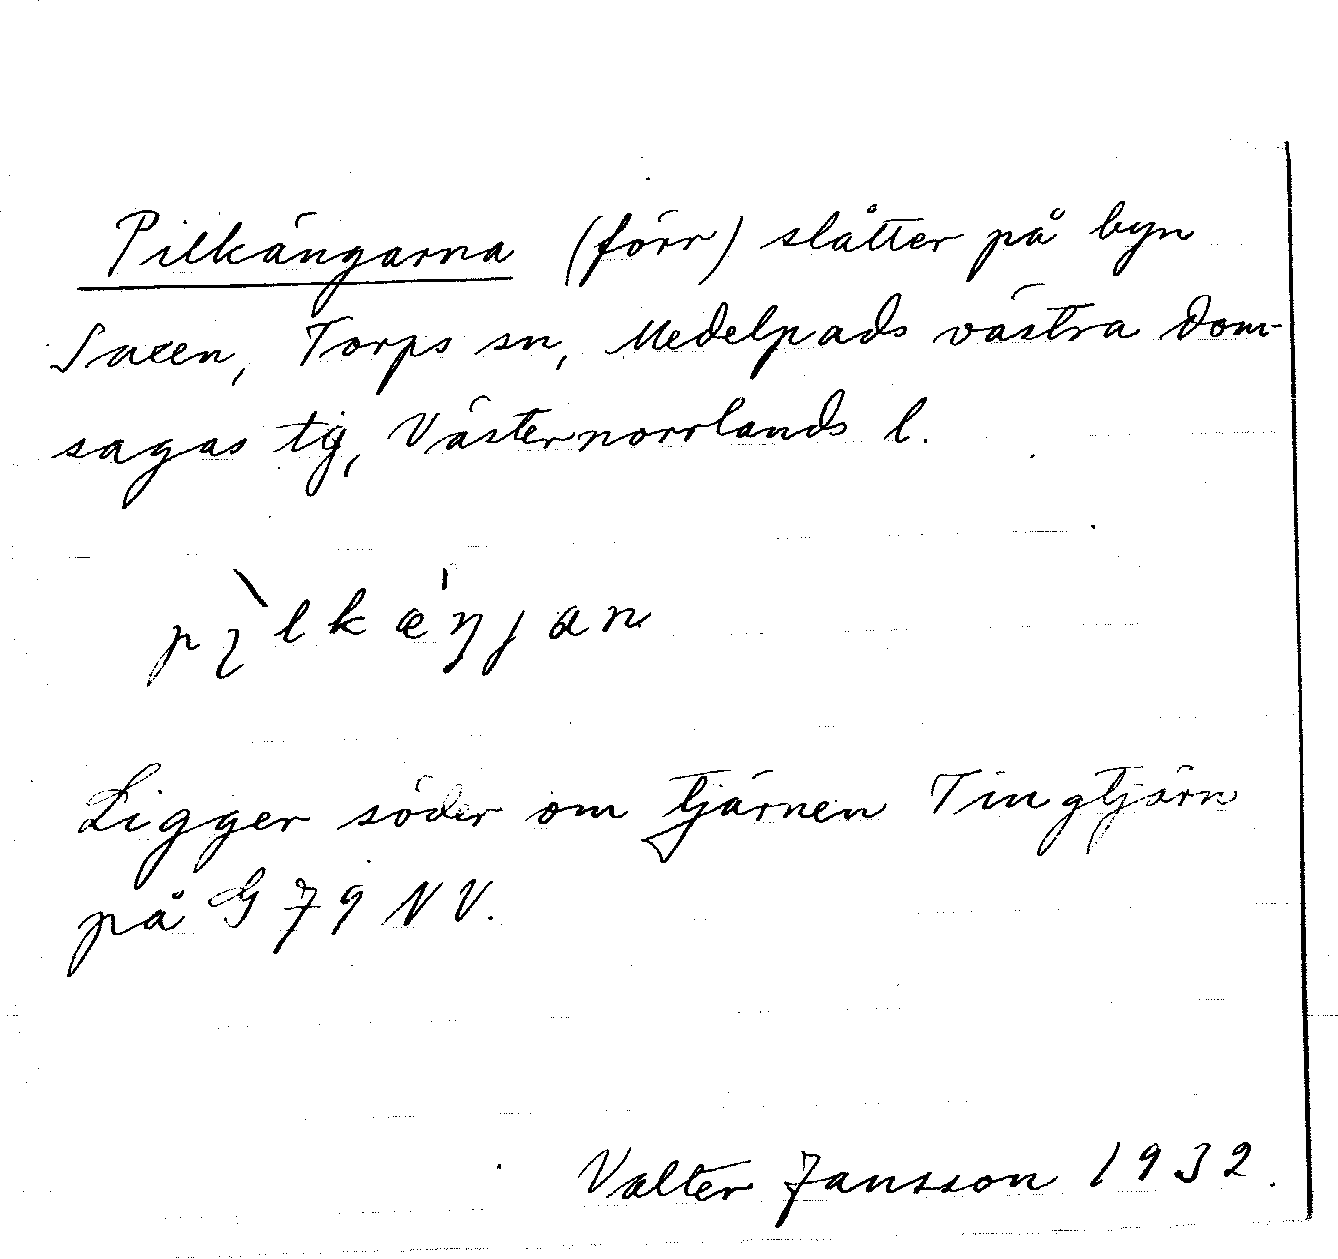 Pilkängarna (förr) slåtter på byn
Saxen, Torps sn, Medelpads västra dom-
sagas tg, Västernorrlands l.
pı̨̀lkæ'ŋȷan
Ligger söder om tjärnen Tingtjärn
på G 79 NV.
Valter Jansson 1932.